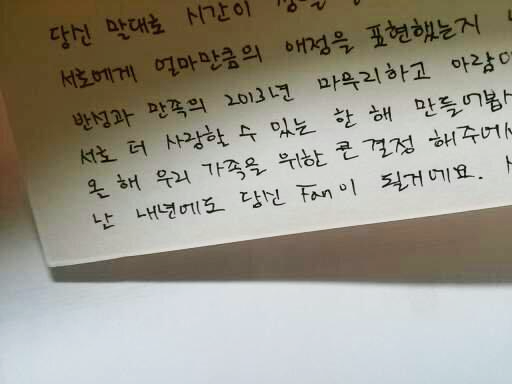 당신 말대로 시간이
서로에게 얼마만큼의 애정을 표현했는지
반성과 만족의 2013년 마무리하고
서로 더 사랑할 수 있는 한 해 만들어봅
올 해 우리 가족을 위한 큰 결정 해주어서
난 내년에도 당신 Fan이 될거에요.